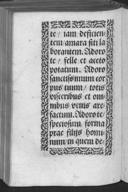 te / iam deficien-
tem amara siti la
borantem. Adoro
te / felle et aceto
potatum. Adoro
sanctissimum cor
pus tuum / totis
visceribus et om
nibus venis are-
factum. Adoro te
speciosum forma
prae filijs homi
num in quem de-